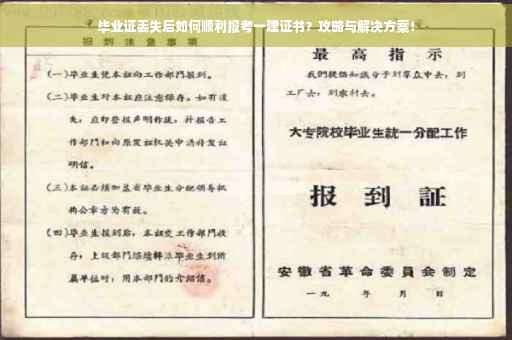 毕业证丢失后如何顺利报考一建证书？攻略与解决方案！
报到注意事项
(一)毕业生凭本证向工作部门报到。
(二)毕业生对本证应注意保存。如有遗
失，应即登报声明作废，并报告工
作部门和向原发证机关申请补发证
明信。
(三)本证必须加盖省毕业生分配领导机
构公章方为有效。
(四)毕业生报到后，本证交工作部门收
存；上级部门
单位时，用本部门的介绍信。
最高指示
我们提倡知识分子到群众中去，到
工厂去，到农村去。
大专院校毕业生统一分配工作
报到证
安徽省革命委员会制定
一九 年 月 日